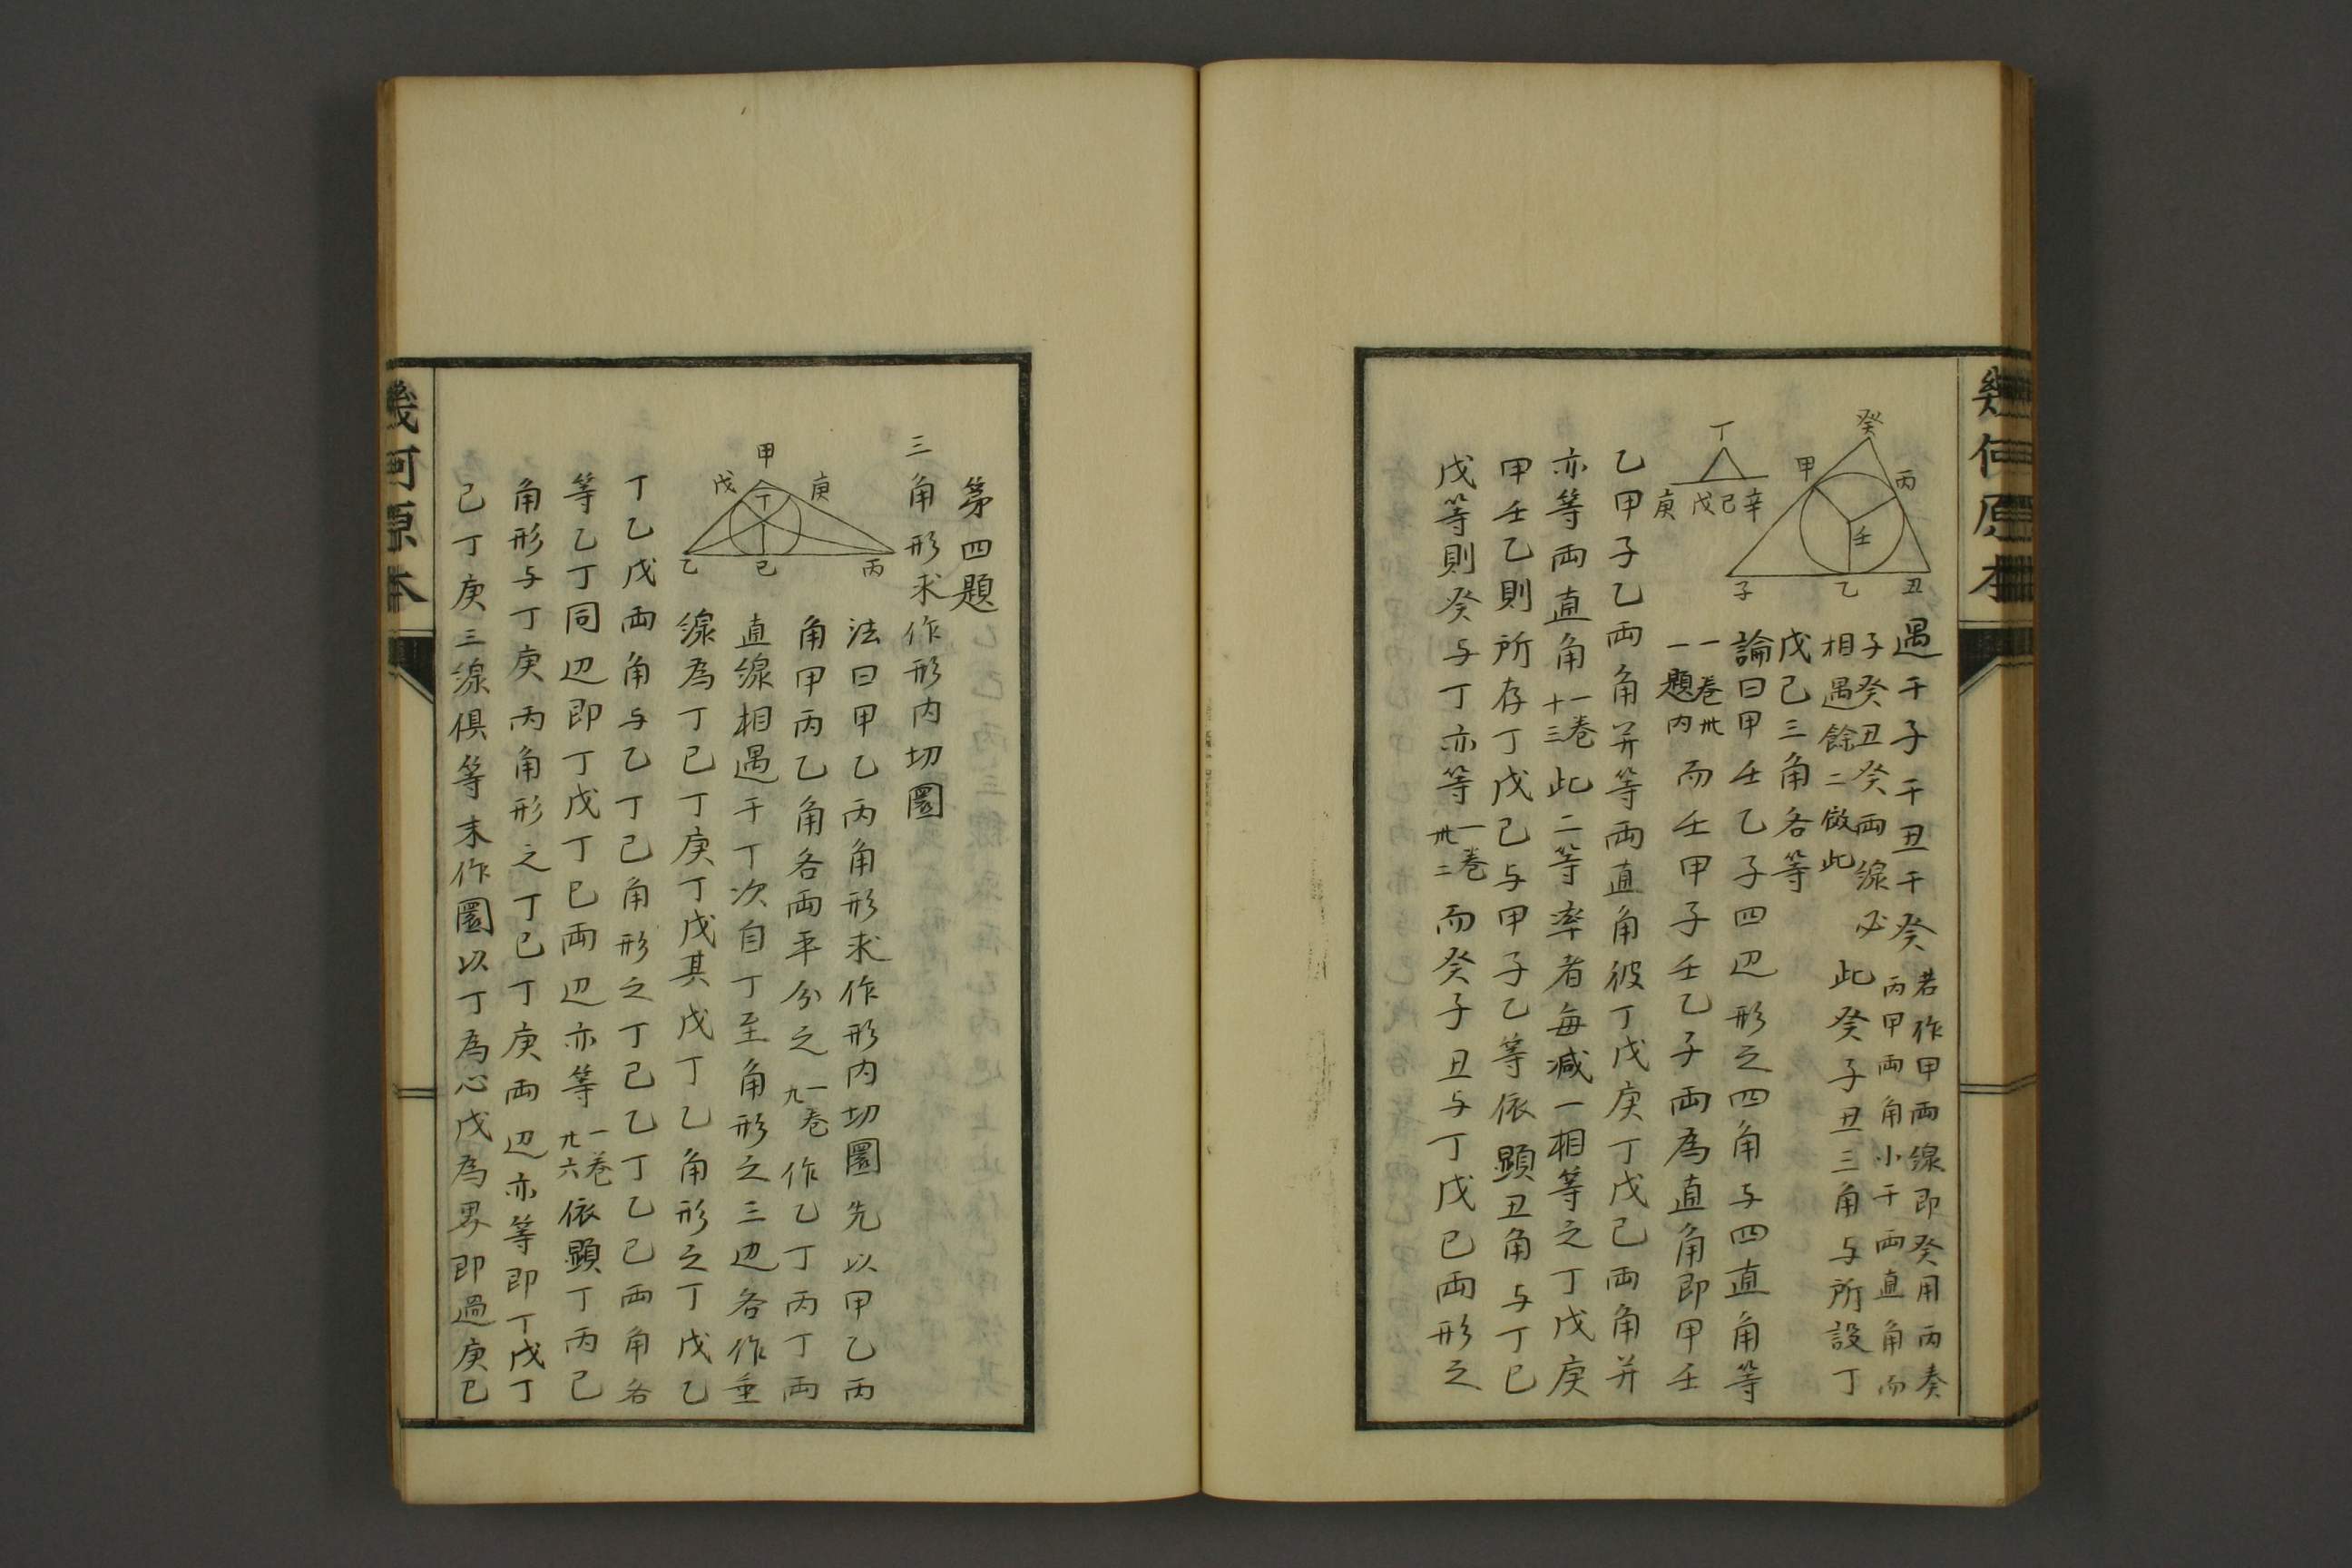 幾何原本
癸
甲
丙
壬
子
乙
丑
丁
庚
戊
己
辛
遇于子于丑于癸
若作甲丙線即癸用丙奏
丙甲兩角小于兩直角而
子癸丑癸兩線必
相遇餘二倣此
此癸子丑三角与所設丁
戊己三角各等
論曰甲壬乙子四辺形之四角与四直角等
一卷卅
一題内
而壬甲子壬乙子兩為直角即甲壬
乙甲子乙兩角并等兩直角彼丁戊庚丁戊己兩角并
亦等兩直角
一卷
十三
此二等率者每减一相等之丁戊庚
甲壬乙則所存丁戊己与甲子乙等依顯丑角与丁己
戊等則癸与丁亦等
一卷
卅二
而癸子丑与丁戊己兩形之
第四題
三角形求作形内切圜
甲
戊
丁
庚
乙
己
丙
法曰甲乙丙角形求作形内切圜先以甲乙丙
角甲丙乙角各兩平分之
一卷
九
作乙丁丙丁兩
直線相遇于丁次自丁至角形之三辺各作垂
線為丁己丁庚丁戊其戊丁乙角形之丁戊乙
丁乙戊兩角与乙丁己角形之丁己乙丁乙己兩角各
等乙丁同辺即丁戊丁己兩辺亦等
一卷
廿六
依顯丁丙己
角形与丁庚丙角形之丁己丁庚兩辺亦等即丁戊丁
己丁庚三線俱等末作圜以丁為心戊為界即過庚己
幾何原本